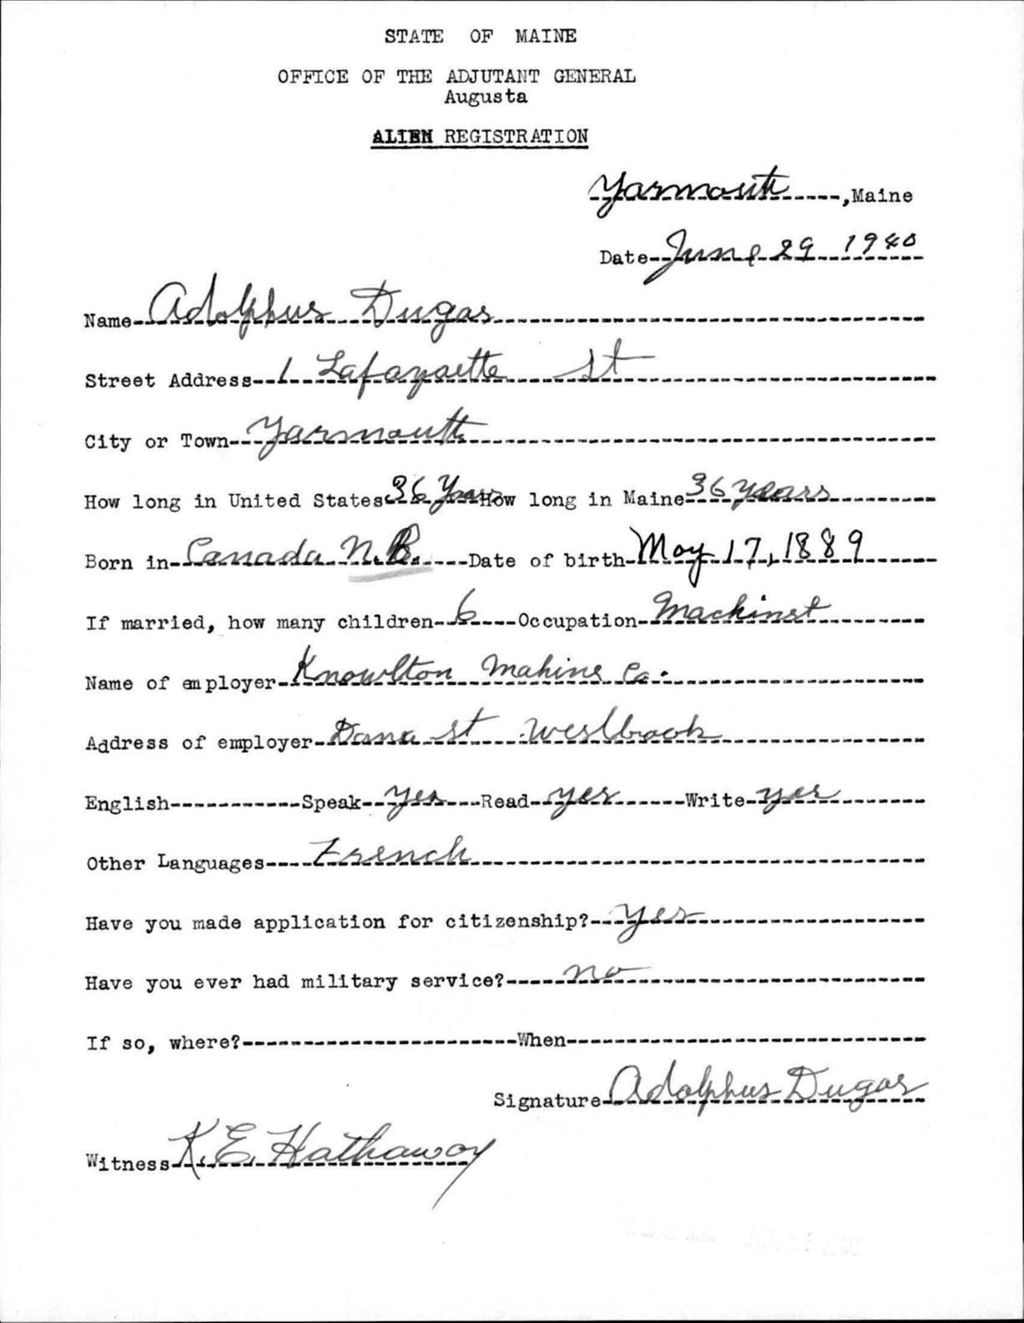 STATE OF MAINE
OFFICE OF THE ADJUTANT GENERAL
Augusta
ALIEN REGISTRATION
Yarmouth, Maine
Date June 29 1940
Name Adolphus Dugas
Street Address 1 Lafayaette St
City or Town Yarmouth
How long in United States 36 Years How long in Maine 36 years
Born in Canada N.B. Date of birth May 17, 1889
If married, how many children 6 Occupation Machinst
Name of employer Knowlton Mahine Co.
Address of employer Dana st Westbrook
English Speak yes Read yes Write yes
Other Languages French
Have you made application for citizenship? yes
Have you ever had military service? no
If so, where? When
Signature Adolphus Dugas
Witness K. E. Hathaway